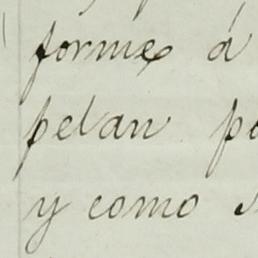 forme á
pelan
y como